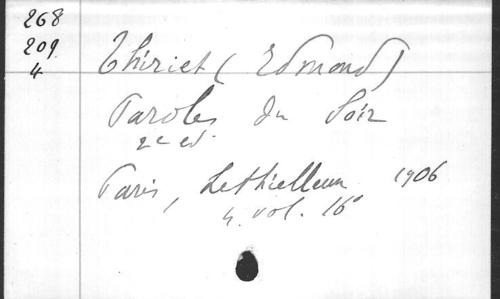 268
209
4
Thiriet (Edmond)
Paroles du Soir
2e ed.
Paris, Lethielleux 1906
4. vol. 16°